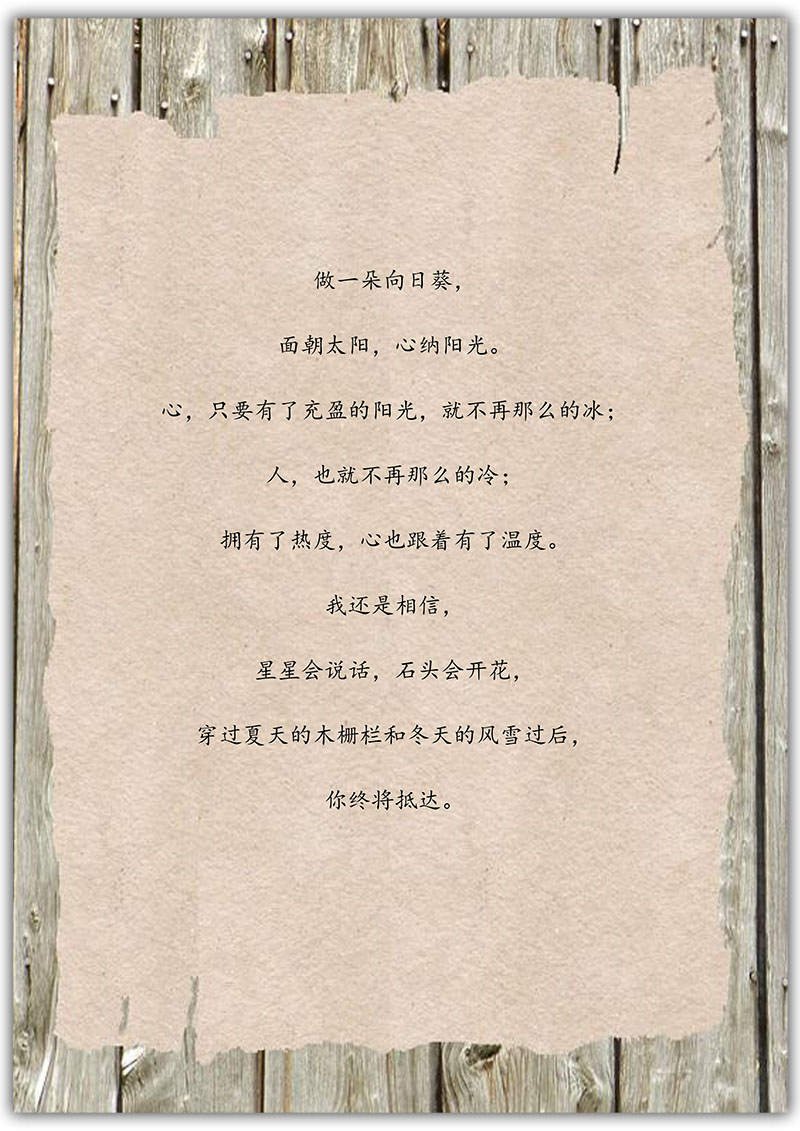 做一朵向日葵，
面朝太阳，心纳阳光。
心，只要有了充盈的阳光，就不再那么的冰；
人，也就不再那么的冷；
拥有了热度，心也跟着有了温度。
我还是相信，
星星会说话，石头会开花，
穿过夏天的木栅栏和冬天的风雪过后，
你终将抵达。